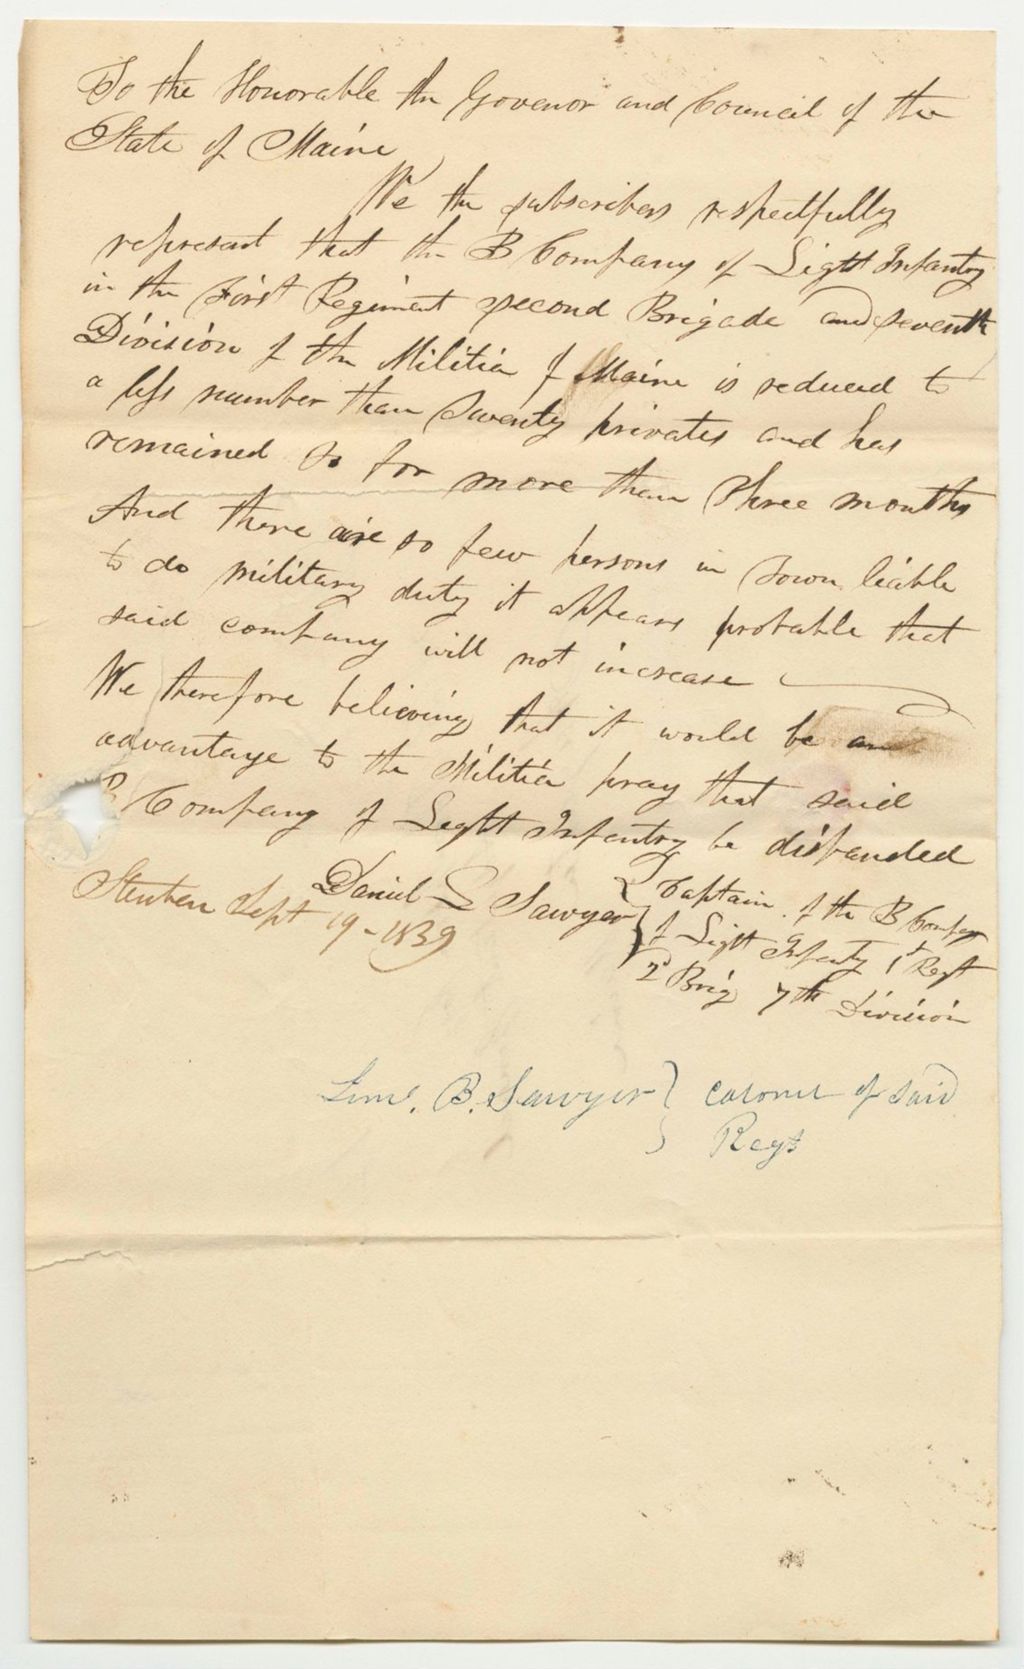 To the Honorable the Govenor and Council of the
State of Maine
We the subscribers respectfully
represent that the B Company of Light Infantry
in the First Regiment second Brigade and seventh
Division of the Militia of Maine is reduced to
a less number than Twenty privates and has
remained so for more than Three months
And there are so few persons in Town liable
to do military duty it appears probable that
said company will not increase
We therefore believing that it would be an
advantage to the Militia pray that said
B Company of Light Infantry be disbanded
Daniel L Sawyer } Captain of the B Company
of Light Infantry 1st Regt
2d Brig 7th Division
Steuben Sept 19 - 1839
B. Sawyer } Colonel of said
Regt